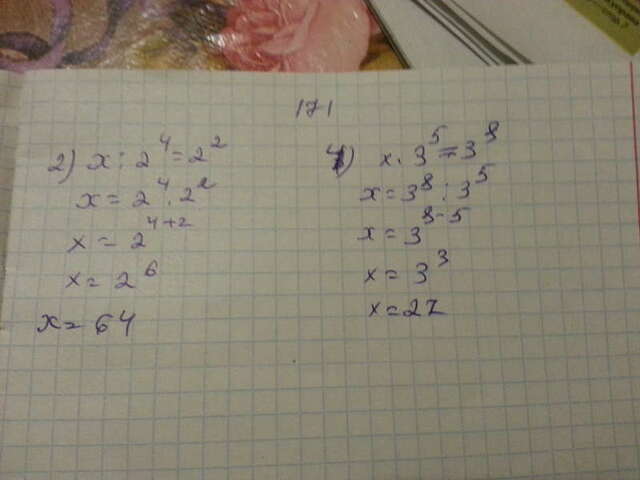 171
2) x : 2⁴ = 2²
x = 2⁴ · 2²
x = 2⁴⁺²
x = 2⁶
x = 64
4) x · 3⁵ = 3⁸
x = 3⁸ : 3⁵
x = 3⁸⁻⁵
x = 3³
x = 27